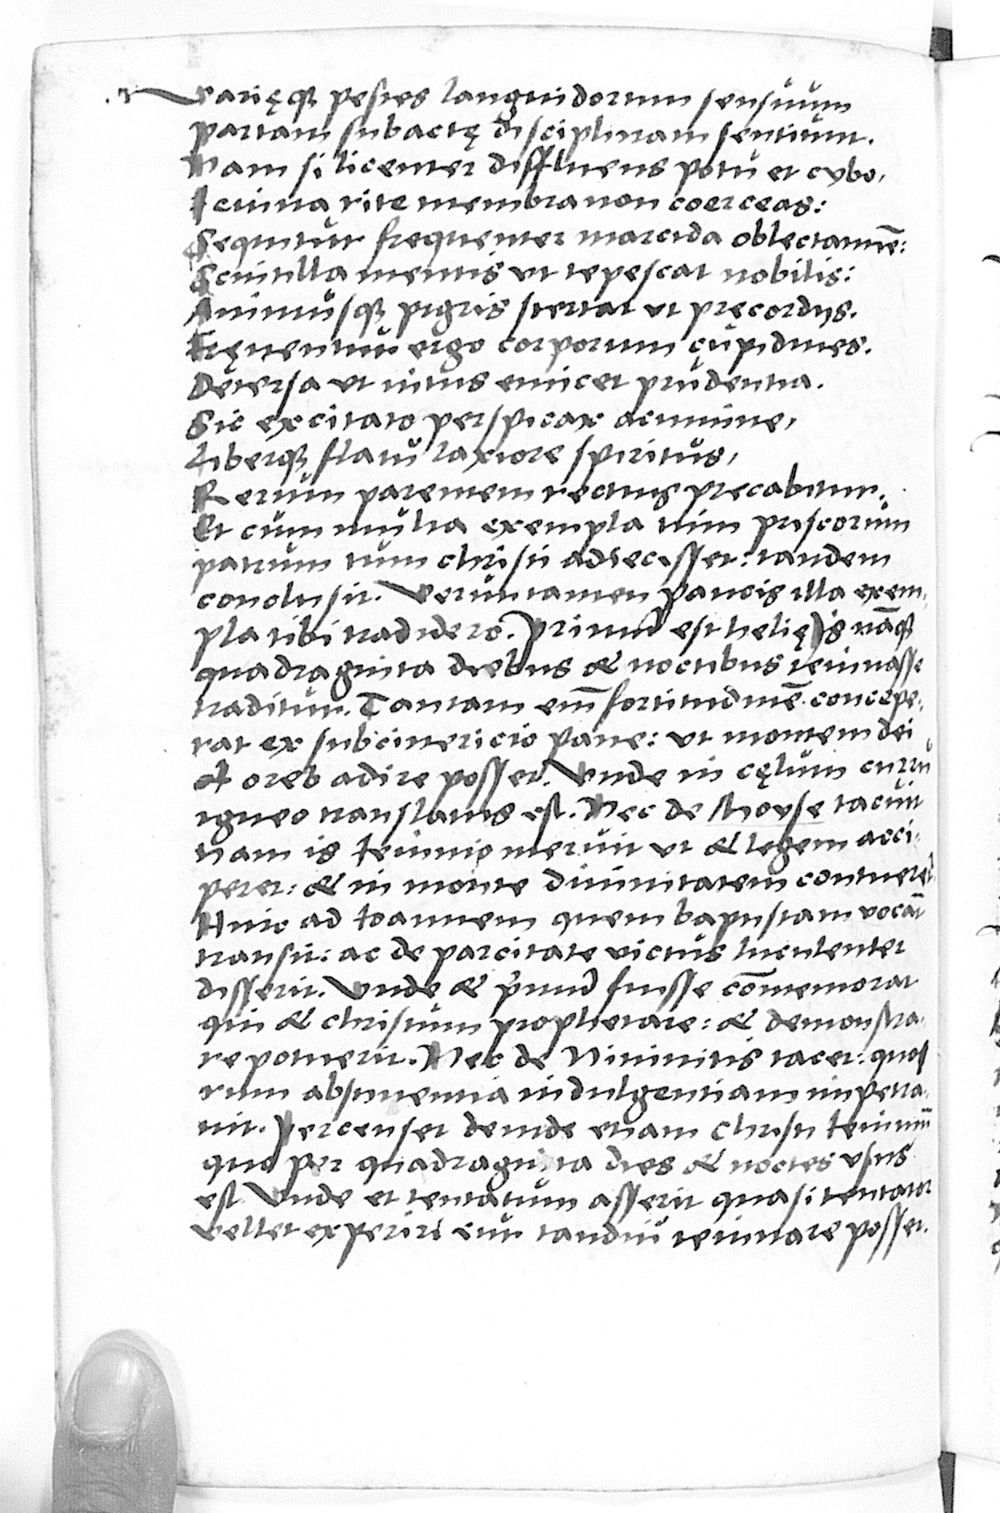 Varięq₃ pestes languidorum sensuum
partam subactę disciplinam sentiunt.
Nam si licenter diffluens potu et cybo,
Ieiuna rite membra non coerceas:
Sequitur frequenter marcida oblectamiē:
Scintilla mentis ut tepescat nobilis:
Animusq₃ pigris stertat ut pręcordijs.
Fręnentur ergo corporum cupidines.
Detersa ut intus emicet prudentia.
Sic excitato perspicax acumine,
Liberq₃ flatu laxiore spiritus,
Rerum parentem rectius precabitur.
Et cum multa exempla tum priscorum
patrum tum christi adiecisset: tandem
conclusit. Veruntamen paucis illa exem,
pla tibi tradidero. Primū est helię) is nāq₃
quadraginta diebus & noctibus ieiunasse
traditur. Tantam em̄ fortitudinē concepe,
rat ex subcinericio pane: ut montem dei
oreb adire posset. Unde in cęlum curru
igneo translatus est. Nec de Moyse tacuit
nam is ieiunio meruit ut & legem acci,
peret: & in monte diuinitatem contueret.
Hinc ad Ioannem quem baptistam vocāt
transit: ac de parcitate victus luculenter
disserit. Unde & p̄mū fuisse cōmemorat
qui & christum prophetare: & demonstra,
re potuerit. Nec de Niniuitis tacet: quoꝝ
rum abstinentia indulgentiam impetra,
uit. Percenset deinde etiam christi ieiuniū
quo per quadraginta dies & noctes usus
est Unde et tentatum asserit quasi tentator
vellet experiri cur tandiu ieiunare posset.